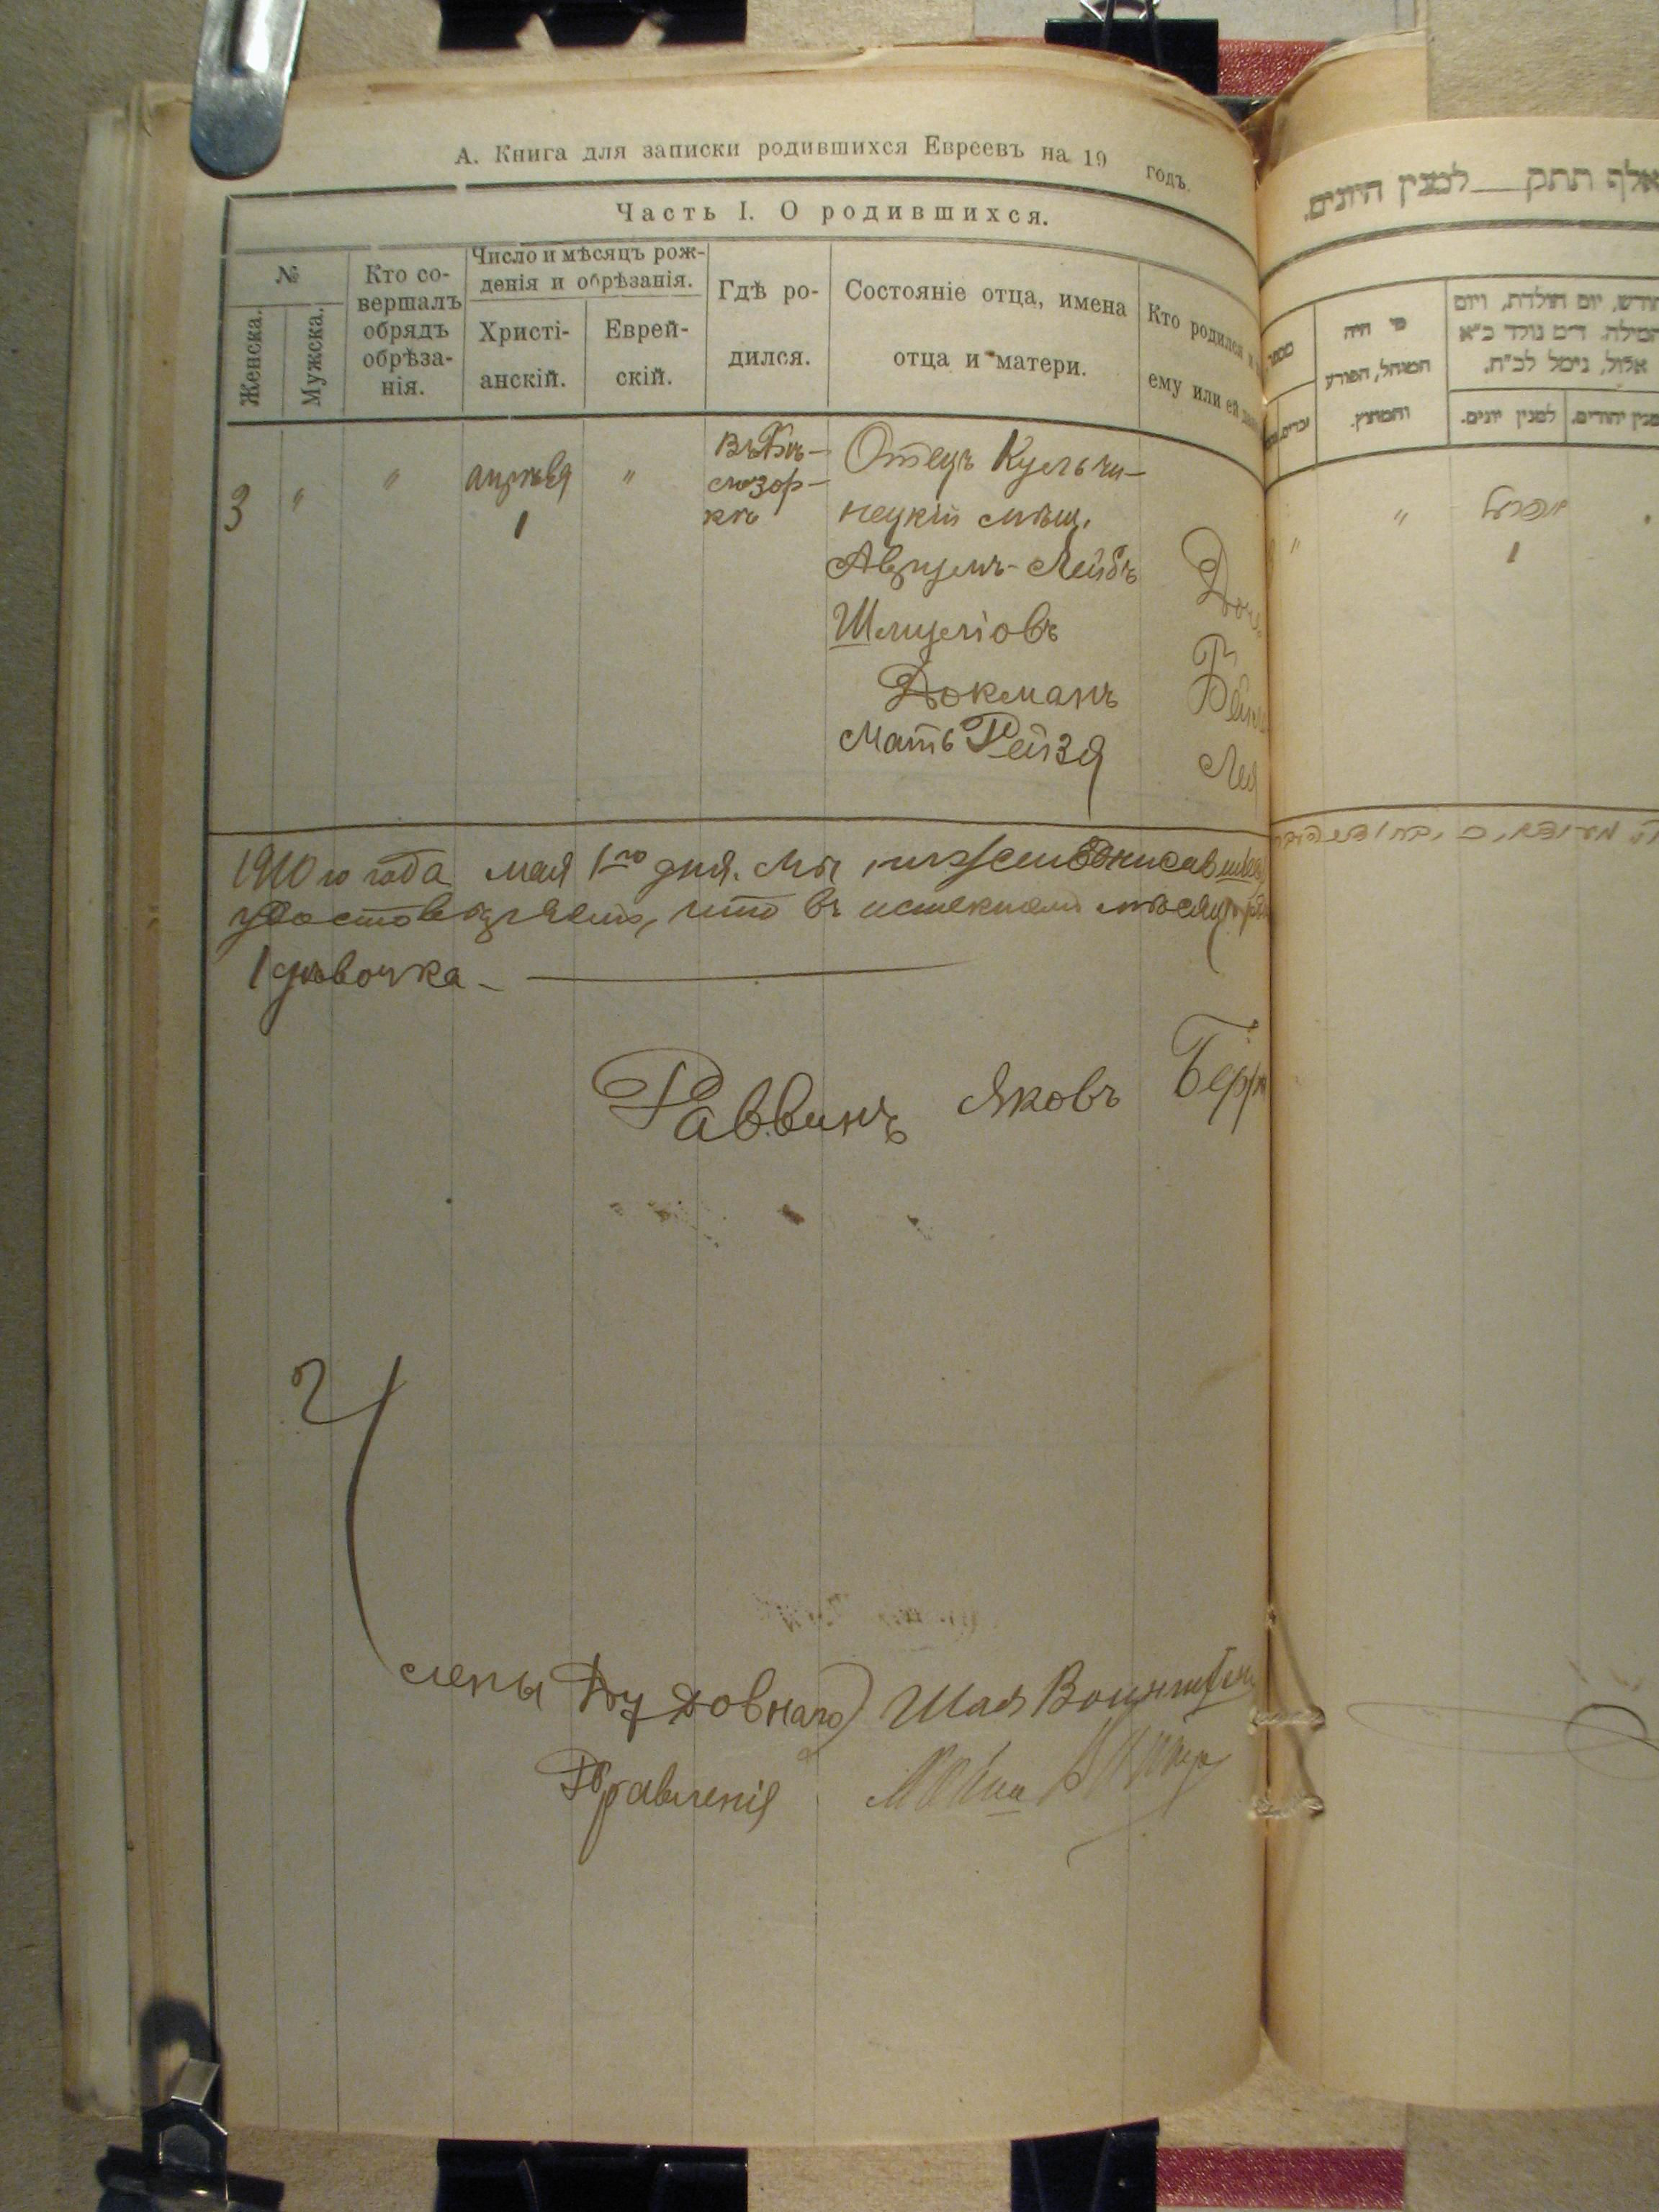 А. Книга для записки родившихся Евреевъ на 19 годъ.
Часть I. О родившихся.
№
Женска.
Мужска.
Кто со-
вершалъ
обрядъ
обрѣза-
нія.
Число и мѣсяцъ рож-
денія и обрѣзанія.
Христі-
анскій.
Еврей-
скій.
Гдѣ ро-
дился.
Состояніе отца, имена
отца и матери.
Кто родился и
ему или ей
3 " " апрѣля "
1
Въ Бѣ-
лозор-
кѣ
Отецъ Кульчи-
нецкій мѣщ.
Аврумъ-Лейбъ
Шмуліовъ
Докманъ
Мать Рейзя
Дочь
Лея
1910 го года мая 1го дня. Мы нижеподписавшіеся
удостовѣряемъ, что въ истекшемъ мѣсяцѣ
1 дѣвочка —
Раввинъ Яковъ
Члены Духовнаго Шая Воинштейнъ
Правленія
אלף תתק___למנין היונים.
חודש, יום הולדת, ויום
המילה. ד"מ נולד כ"א
אלול, נימל לכ"ח.
מי היה
המוהל, הפורע
והמוצץ.
למנין יונים.
" " אפריל
1